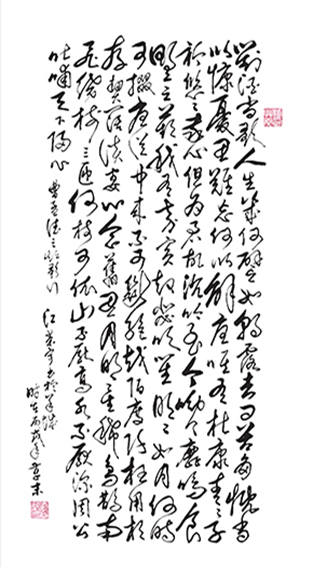 對酒當歌人生幾何譬如朝露去日苦多慨當
以慷憂思難忘何以解憂唯有杜康青々子
衿悠々我心但為君故沉吟至今呦々鹿鳴食
野之苹我有嘉賓鼓瑟吹笙明々如月何時
可掇憂從中來不可斷絕越陌度阡枉用相
存契闊談宴心念舊恩月明星稀烏鵲南
飛繞樹三匝何枝可依山不厭高水不厭深周公
吐哺天下歸心 曹孟德之短歌行 江書於羊城
時在丙戌年